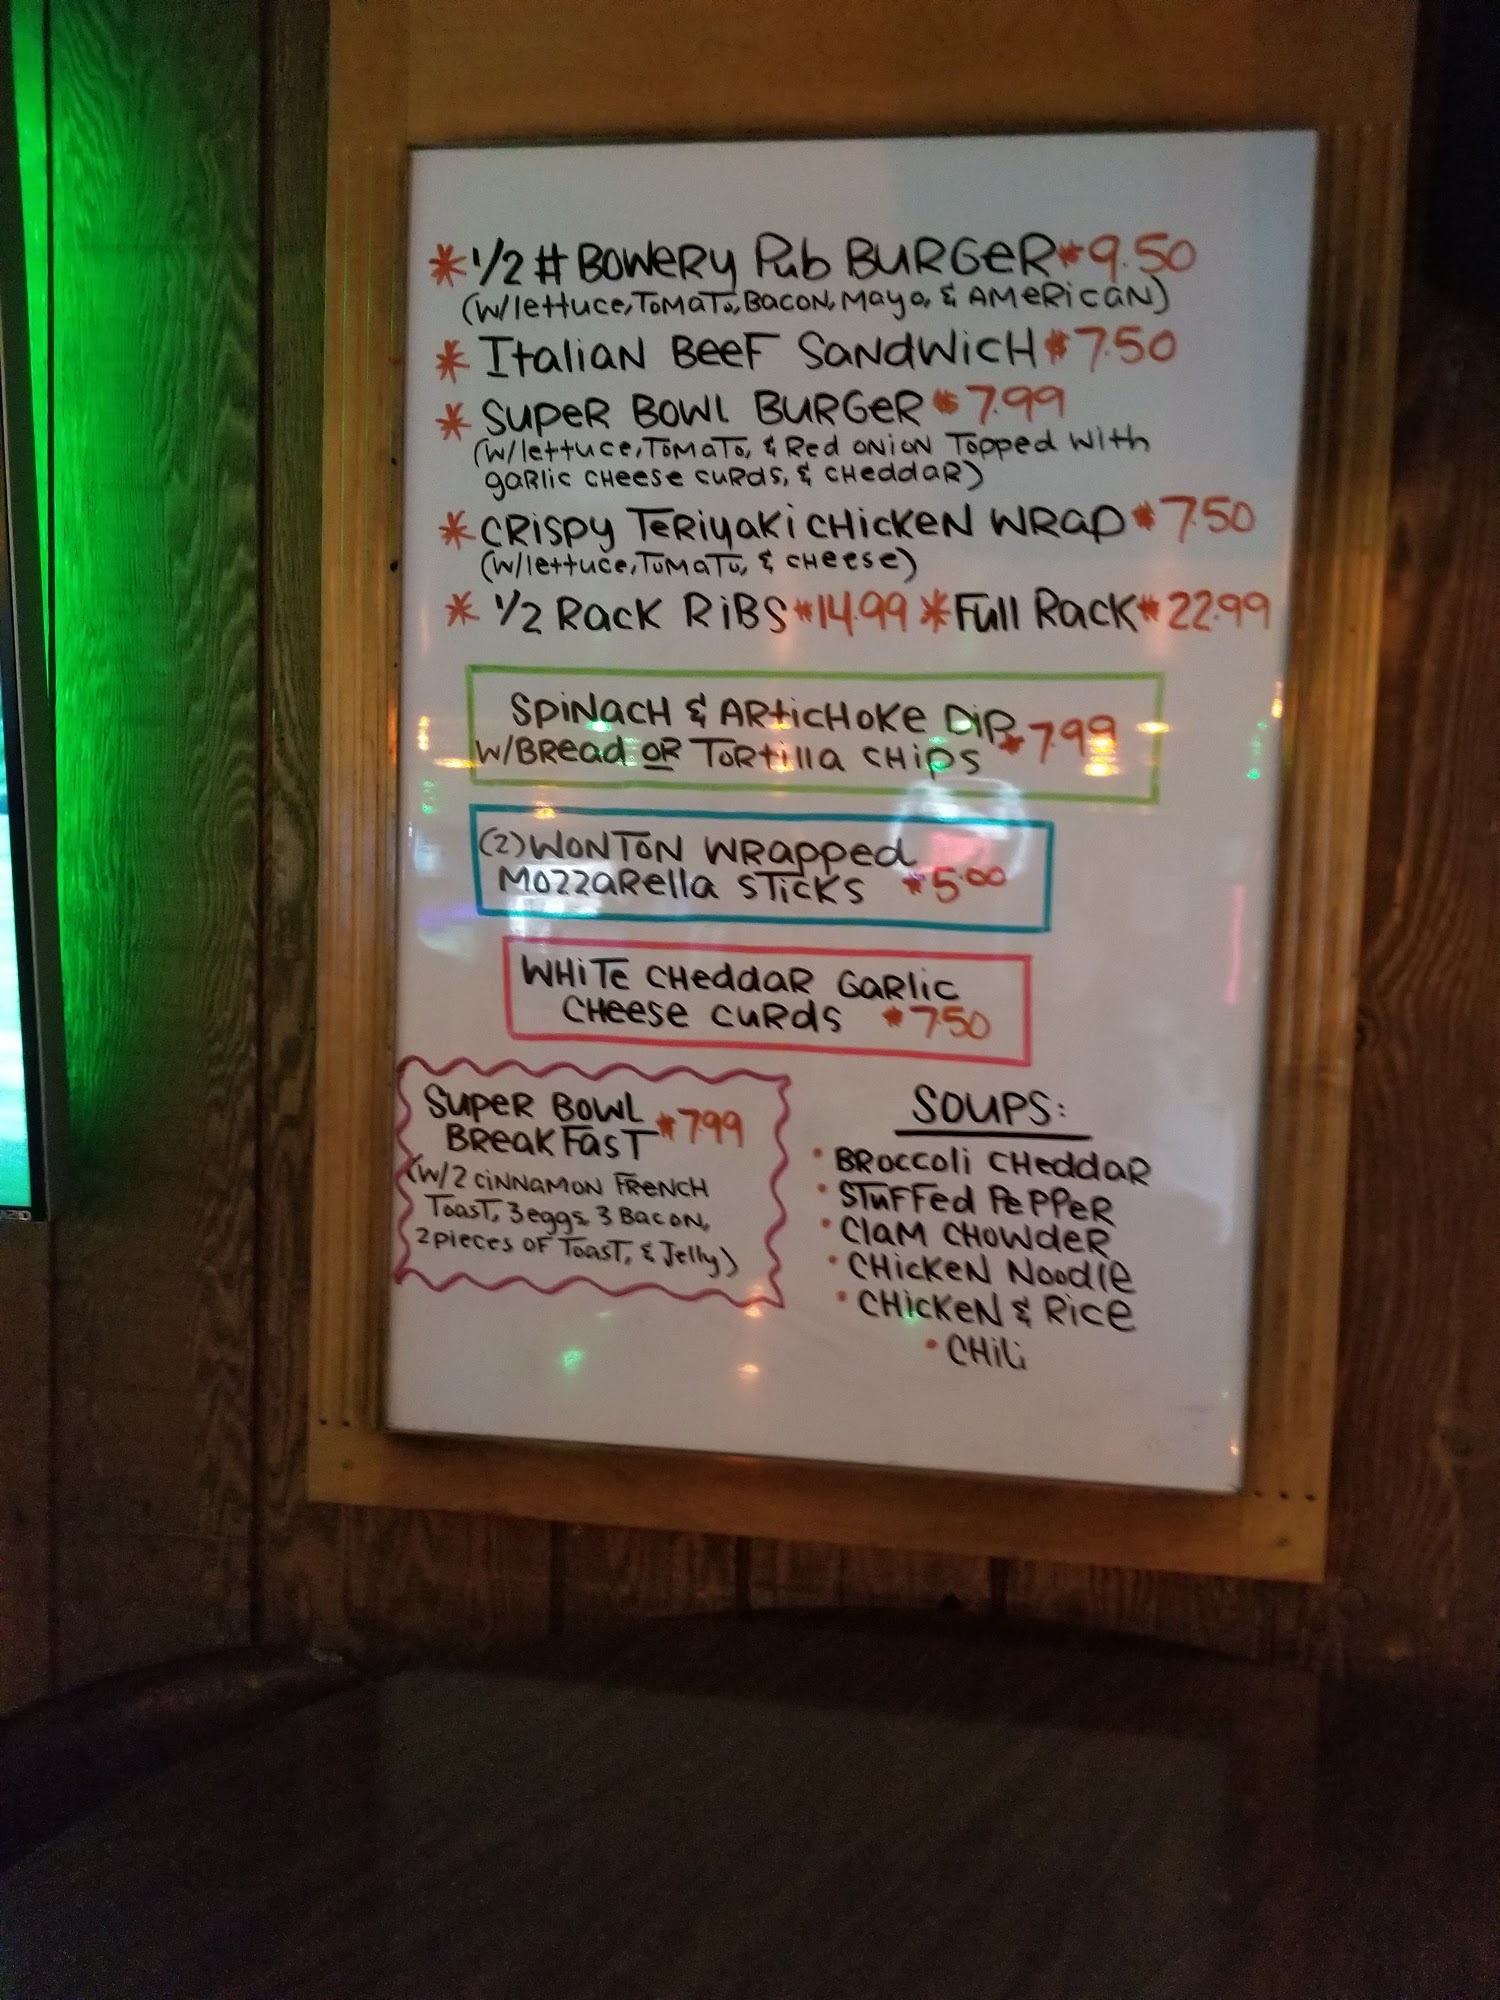 * 1/2 # Bowery Pub Burger $9.50
(w/lettuce, Tomato, Bacon, Mayo, & American)
* Italian Beef Sandwich $7.50
* Super Bowl Burger $7.99
(w/lettuce, Tomato, & Red Onion Topped with
garlic cheese curds, & cheddar)
* Crispy Teriyaki Chicken Wrap $7.50
(w/lettuce, Tomato, & cheese)
* 1/2 Rack Ribs $14.99 * Full Rack $22.99
Spinach & Artichoke Dip
w/Bread or Tortilla Chips $7.99
(2) Wonton Wrapped
Mozzarella Sticks $5.00
White Cheddar Garlic
Cheese Curds $7.50
Super Bowl
Breakfast $7.99
(w/2 cinnamon French
Toast, 3 eggs, 3 Bacon,
2 pieces of Toast, & Jelly)
Soups:
• Broccoli Cheddar
• Stuffed Pepper
• Clam Chowder
• Chicken Noodle
• Chicken & Rice
• Chili